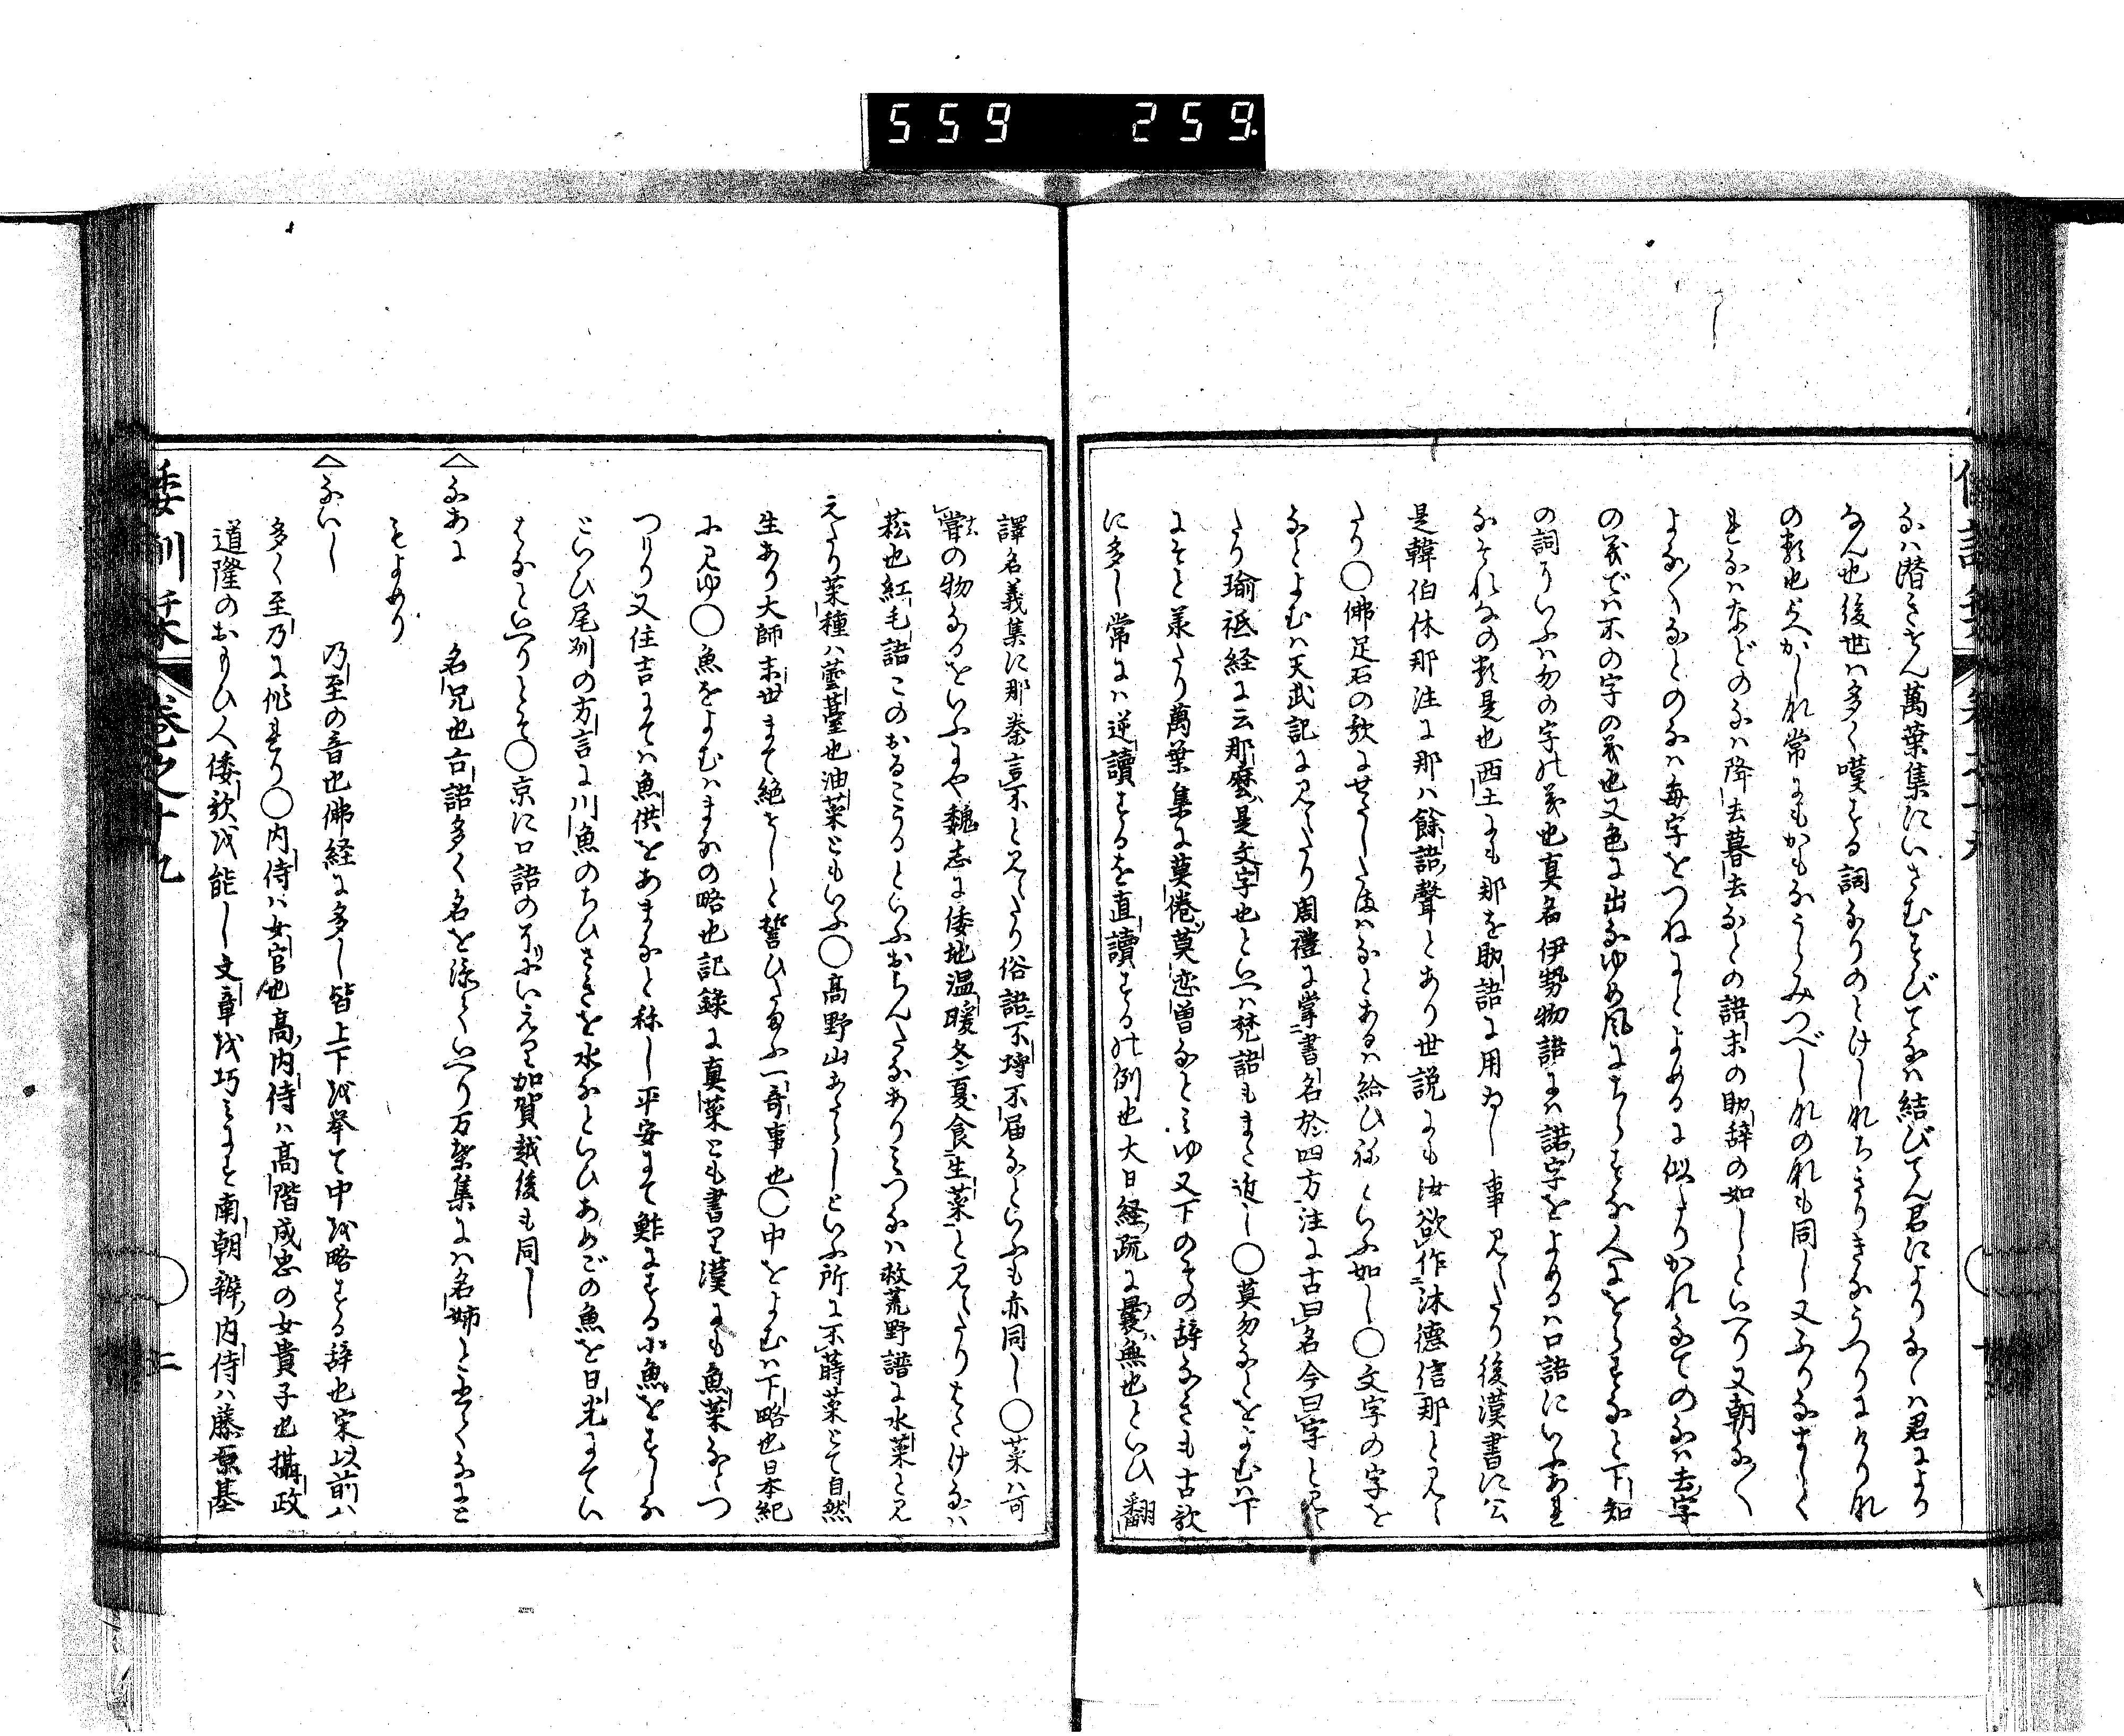 559 259.
なハ潜きせん萬葉集にいさむすびてなハ結びてん君によりなゝハ君により
なん也後世ハ多く嘆する詞なりのとけしれちきりきなうつりにけりれ
の類也よへかしれ常にもかもなうらみつべしれのれも同し又ふりなまし
まなハなどのなハ降去暮去なとの語末の助辞の如しといへり又朝な〱
よな〱なとのなハ毎字をつねにとよめるに似たりかれなてのなハ去字
の義ぞハ不の字の義也又色に出なゆめ風にちらすな人にをらすなと下知
の詞にいふハ勿の字の義也真名伊勢物語にハ諾字をよめるハ口語にいふあま
なそれなの類是也西土にも那を助語に用ゐし事見えたり後漢書に公
是韓伯休那注に那ハ餘語聲とあり世説にも汝欲作沐德信那と見え
たり○佛足石の歌にせしたまハなとあるハ給ひねといふ如し○文字の字を
なとよむハ天武記に見えたり周禮に掌書名於四方注に古曰名今曰字と見え
たり瑜祇経に云那麼是文字也といへハ梵語もまた近し○莫勿なとをよむハ下
にそと承たり萬葉集に莫倦莫恋曽なとミゆ又下のその辞なきも古歌
に多し常にハ逆讀するを直讀するの例也大日経疏に曩無也といひ翻
譯名義集に那秦言不と見えたり俗語不埒不届なといふも亦同し○菜ハ可
嘗の物なるをいふにや魏志に倭地温暖冬夏食生菜と見えたりはたけなハ
菘也紅毛語このおるこうるといふおらんたなありミつなハ救荒野譜に水菜と見
えたり菜種ハ蕓薹也油菜ともいふ○高野山あたらしといふ所に不蒔菜とて自然
生あり大師末世まて絶せしと誓ひたまふ一奇事也○中をよむハ下略也日本紀
に見ゆ○魚をよむハまなの略也記録に真菜とも書り漢にも魚菜なとつ
つけり又住吉にてハ魚供をあまなと称し平安にて鮓にする小魚をすしな
といひ尾州の方言に川魚のちひさきを水なといひあめごの魚を日光にてい
はなといへりとそ○京に口語のなぶいえを加賀越後も同し
△なあに 名兄也古語多く名を添ていへり万葉集にハ名姉と
もよめり
△ないし 乃至の音也佛経に多し皆上下を挙て中を略する辞也宋以前ハ
多く至乃に作れり○内侍ハ女官也高内侍ハ高階成忠の女貴子也攝政
道隆のおもひ人倭歌を能し文章を巧ミにす南朝辨内侍ハ藤原基
倭訓栞 巻之十九 二